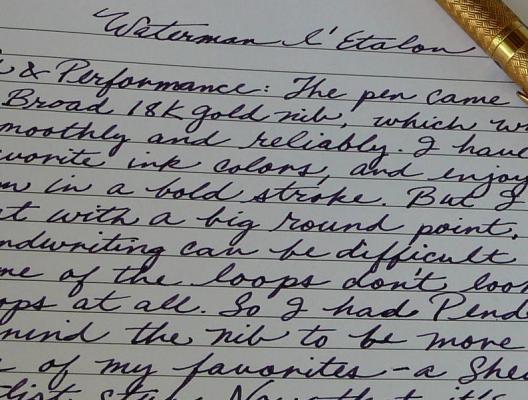 Waterman l'Etalon
& Performance: The pen came
Broad 18K gold nib, which w
moothly and reliably. I have
vorite ink colors, and enjoy
m in a bold stroke. But I
t with a big round point,
ndwriting can be difficult
me of the loops don't look
ops at all. So I had Pend
mend the nib to be more
of my favorites - a Shea